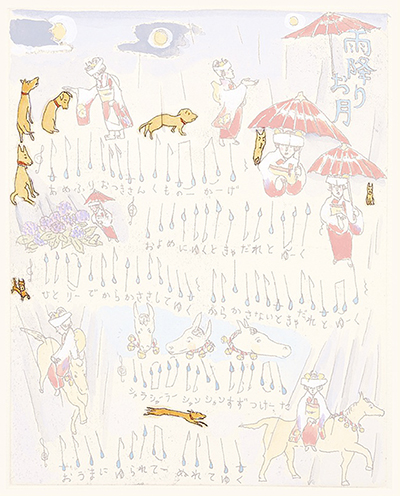 雨降り
お月
あめふりおつきさんくものーかーげ
およめにゆくときゃだれとゆーく
ひとりーでからかささしてゆく からかさないときゃだれとゆーく
シャラシャラシャンシャンすずつけーた
おうまにゆられてーぬれてゆく